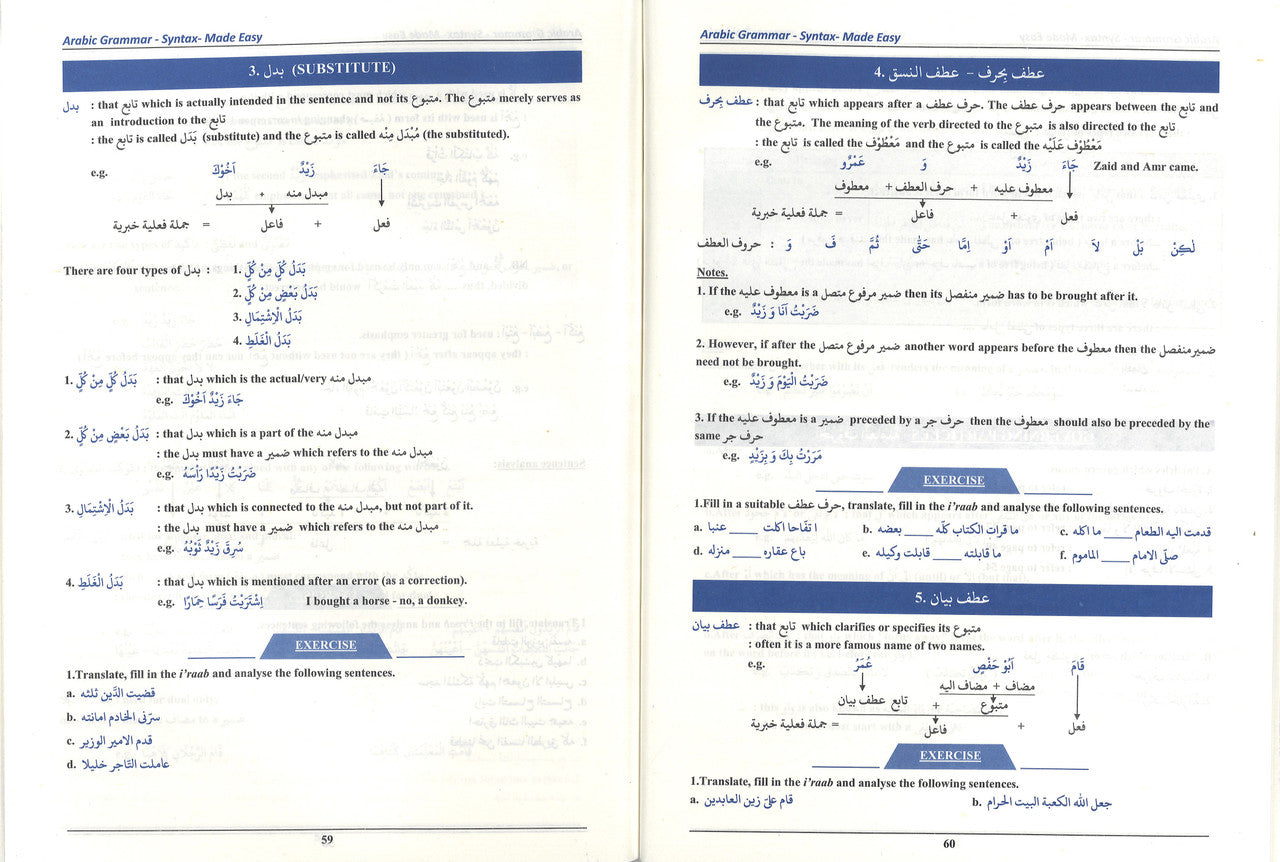 Arabic Grammar - Syntax- Made Easy
3. بدل (SUBSTITUTE)
بدل : that تابع which is actually intended in the sentence and not its متبوع. The متبوع merely serves as
an introduction to the تابع
: the تابع is called بَدَل (substitute) and the متبوع is called مُبْدَل مِنْه (the substituted).
e.g. جَاءَ زَيْدٌ اَخُوْكَ
مبدل منه + بدل
فعل + فاعل = جملة فعلية خبرية
There are four types of بدل :
1. بَدَلُ كُلٍّ مِنْ كُلٍّ
2. بَدَلُ بَعْضٍ مِنْ كُلٍّ
3. بَدَلُ الْاِشْتِمَالِ
4. بَدَلُ الْغَلَطِ
1. بَدَلُ كُلٍّ مِنْ كُلٍّ : that بدل which is the actual/very مبدل منه
e.g. جَاءَ زَيْدٌ اَخُوْكَ
2. بَدَلُ بَعْضٍ مِنْ كُلٍّ : that بدل which is a part of the مبدل منه
: the بدل must have a ضمير which refers to the مبدل منه
e.g. ضَرَبْتُ زَيْدًا رَأْسَهُ
3. بَدَلُ الْاِشْتِمَالِ : that بدل which is connected to the مبدل منه, but not part of it.
: the بدل must have a ضمير which refers to the مبدل منه
e.g. سُرِقَ زَيْدٌ ثَوْبُهُ
4. بَدَلُ الْغَلَطِ : that بدل which is mentioned after an error (as a correction).
e.g. اِشْتَرَيْتُ فَرَسًا حِمَارًا I bought a horse - no, a donkey.
EXERCISE
1.Translate, fill in the i'raab and analyse the following sentences.
a. قضيت الدَّين ثلثه
b. سرّنى الخادم امانته
c. قدم الامير الوزير
d. عاملت التّاجر خليلا
59
Arabic Grammar - Syntax- Made Easy
4. عطف بِحرف – عطف النسق
عطف بِحرف : that تابع which appears after a حرف عطف. The حرف عطف appears between the تابع and
the متبوع. The meaning of the verb directed to the متبوع is also directed to the تابع
: the تابع is called the مَعْطُوْف and the متبوع is called the مَعْطُوْف عَلَيْه
e.g. جَاءَ زَيْدٌ وَ عَمْرٌو Zaid and Amr came.
معطوف عليه + حرف العطف + معطوف
فعل + فاعل = جملة فعلية خبرية
حروف العطف : وَ فَ ثُمَّ حَتّٰى اِمَّا اَوْ اَمْ لاَ بَلْ لٰكِنْ
Notes.
1. If the معطوف عليه is a ضمير مرفوع متصل then its ضمير منفصل has to be brought after it.
e.g. ضَرَبْتُ اَنَا وَ زَيْدٌ
2. However, if after the ضمير مرفوع متصل another word appears before the معطوف then the ضمير منفصل
need not be brought.
e.g. ضَرَبْتُ الْيَوْمَ وَ زَيْدٌ
3. If the معطوف عليه is a ضمير preceded by a حرف جر then the معطوف should also be preceded by the
same حرف جر
e.g. مَرَرْتُ بِكَ وَ بِزَيْدٍ
EXERCISE
1.Fill in a suitable حرف عطف, translate, fill in the i'raab and analyse the following sentences.
a. ا تفّاحا اكلت ____ عنبا b. ما قرات الكتاب كلّه ____ بعضه c. قدمت اليه الطعام ____ ما اكله
d. باع عقاره ____ منزله e. ما قابلته ____ قابلت وكيله f. صلّى الامام ____ الماموم
5. عطف بيان
عطف بيان : that تابع which clarifies or specifies its متبوع
: often it is a more famous name of two names.
e.g. قَامَ اَبُوْ حَفْصٍ عُمَرُ
مضاف + مضاف اليه
متبوع + تابع عطف بيان
فعل + فاعل = جملة فعلية خبرية
EXERCISE
1.Translate, fill in the i'raab and analyse the following sentences.
a. قام علىّ زين العابدين b. جعل الله الكعبة البيت الحرام
60